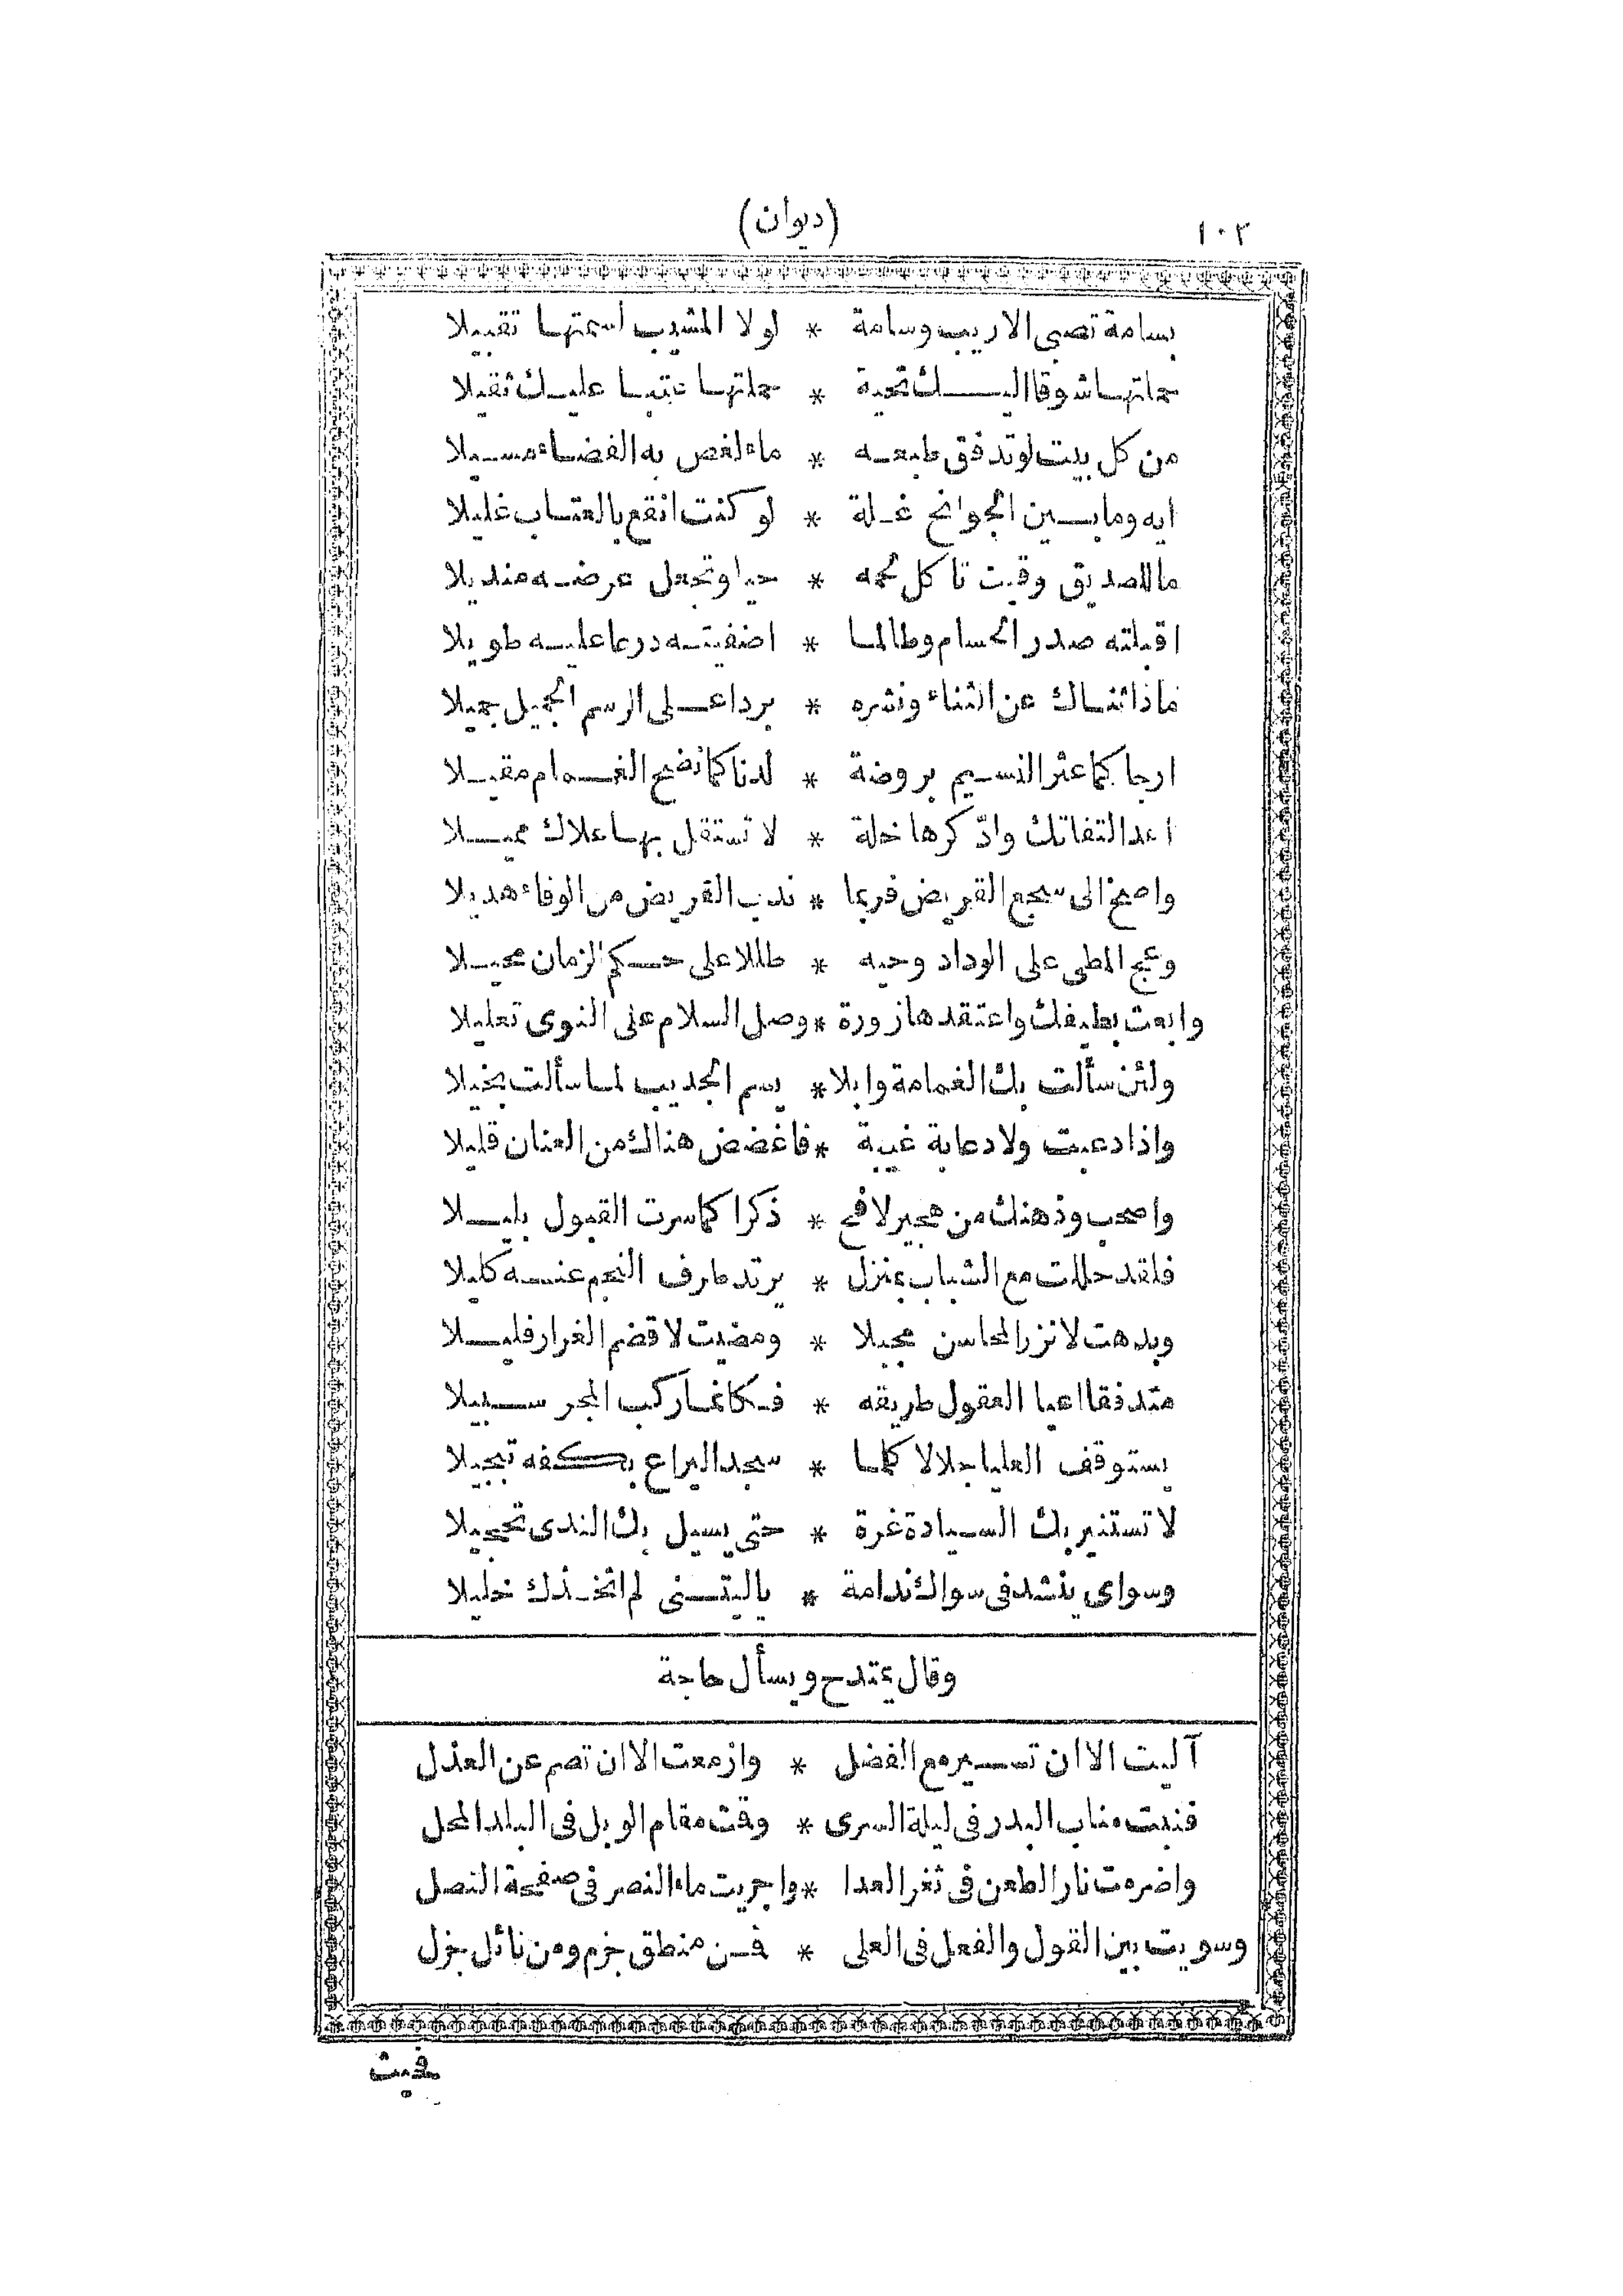 ١٠٢
(ديوان)
بسامة تصبى الاريب وسامة * لولا المشيب لسمتها تقبيلا
حملتها شوقا اليك تحية * حملتها عتبا عليك ثقيلا
من كل بيت لو تدفق طبعه * ماء لغص به الفضاء مسيلا
ايه وما بين الجوانح غلة * لو كنت انقع بالعتاب غليلا
ما للصديق وقيت تاكل لحمه * حيا وتجعل عرضه منديلا
اقبلته صدر الحسام وطالما * اضفيته درعا عليه طويلا
ماذا ثناك عن الثناء ونشره * بردا على الرسم الجميل جميلا
ارجا كما عثر النسيم بروضة * لدنا كما نضح الغمام مقيلا
اعد التفاتك وادّكرها خلة * لا تستقل بها علاك مميلا
واصخ الى سجع القريض فربما * ندب القريض من الوفاء هديلا
وعج المطى على الوداد وحيه * طللا على حكم الزمان محيلا
وابعث بطيفك واعتقدها زورة * وصل السلام على النوى تعليلا
ولئن سألت بك الغمامة وابلا * يسم الجديب لما سألت بخيلا
واذا دعبت ولا دعابة غيبة * فاغضض هناك من العنان قليلا
واصحب وذهنك من هجير لافح * ذكرا كما سرت القبول بليلا
فلقد حللت مع الشباب بمنزل * يرتد طرف النجم عنه كليلا
وبدهت لا نزر المحاسن مجبلا * ومضيت لا قضم الغرار فليلا
متدفقا اعيا العقول طريقه * فكانما ركب المجر سبيلا
يستوقف العليا جلالا كلما * سجد اليراع بكفه تبجيلا
لا تستنير بك السيادة غرة * حتى يسيل بك الندى تحجيلا
وسواى ينشد فى سواك ندامة * ياليتنى لم اتخذك خليلا
وقال يمتدح ويسأل حاجة
آليت الا ان تسير مع الفضل * وازمعت الا ان تصم عن العذل
فنبت مناب البدر فى ليلة السرى * وقمت مقام الوبل فى البلد المحل
واضرمت نار الطعن فى ثغر العدا * واجريت ماء النصر فى صفحة النصل
وسويت بين القول والفعل فى العلى * فمن منطق جزم ومن نائل جزل